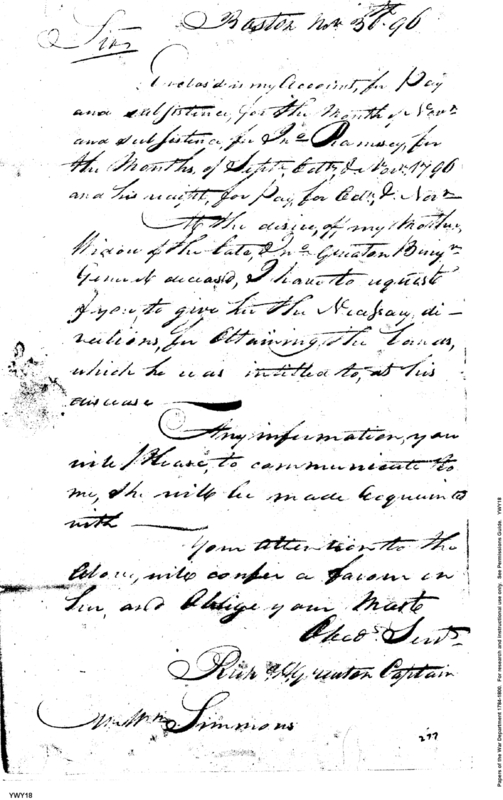 Boston Nov 30th. 96
Sir,
Enclosed is my Account, for Pay
and subsistence, for the Month of Novr
and subsistence for Jno Ramsey, for
the Months, of Septr, Octr, & Novr. 1796
and his receit, for Pay, for Octr, & Novr
At the desire, of my Mother,
Widow of the late, Jno Greaton
General deceased, I have to request
of you, to give her the Necessary di-
rections, for Obtaining, the Lands,
which he was intitled to, at his
disease
Any information, you
will Please, to communicate to
me, She will be made Acquainted
with
Your Attention to the
Above, will confer a favour on
her, and Oblige your
Obedt. Servt.
Richd H Greaton Captain
Mr. Wm. Simmons
277
YWY18
Papers of the War Department 1784-1800. For research and instructional use only. See Permissions Guide. YWY18